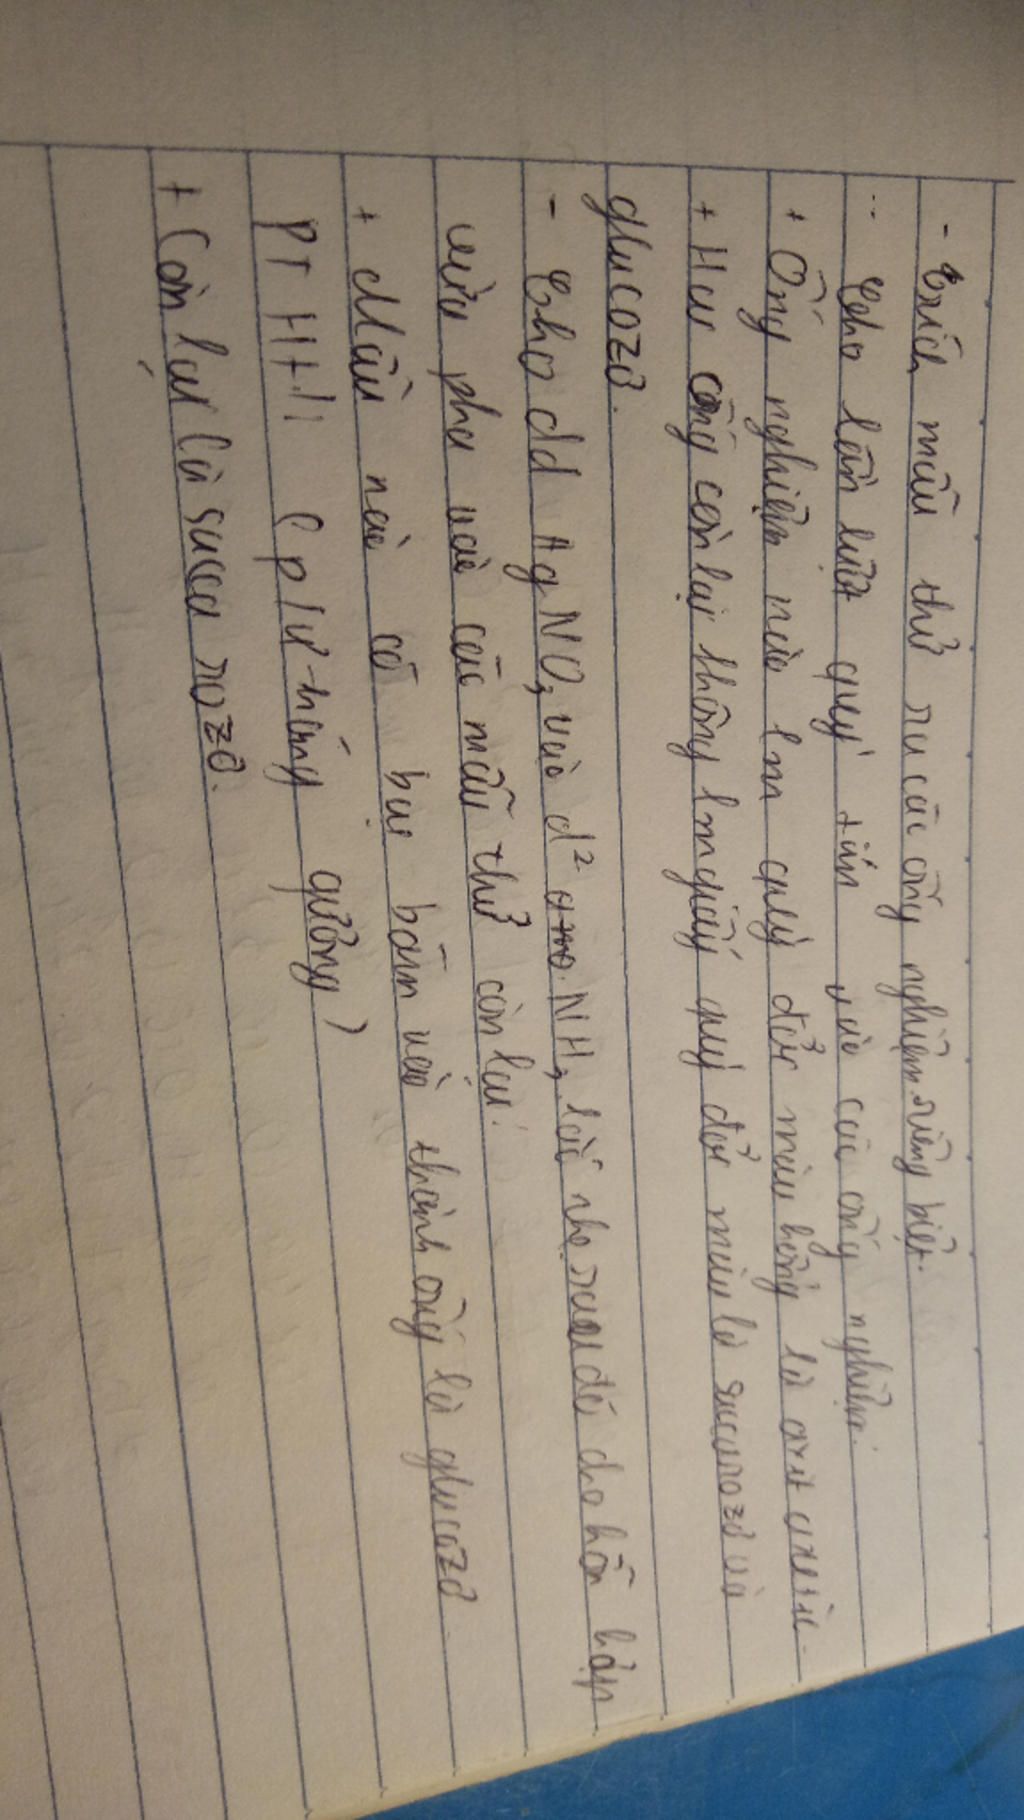 - Trích mẫu thử ra các ống nghiệm riêng biệt.
- Cho lần lượt quỳ tím vào các ống nghiệm.
+ Ống nghiệm nào lm quỳ đổi màu hồng là axit axetic.
+ Hai ống còn lại không lm giấy quỳ đổi màu là saccarozơ và
glucozơ.
- Cho dd AgNO3 vào d² NH3, lắc nhẹ sau đó cho hỗn hợp
vừa pha vào các mẫu thử còn lại.
+ Mẫu nào có bạc bám vào thành ống là glucozơ.
PTHH: (p/ư tráng gương)
+ Còn lại là saccarozơ.